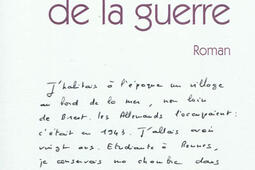 de la guerre
Roman
J'habitais à l'époque un village
au bord de la mer, non loin
de Brest. Les Allemands l'occupaient :
c'était en 1943. J'allais avoir
vingt ans. Etudiante à Rennes,
je conservais ma chambre dans